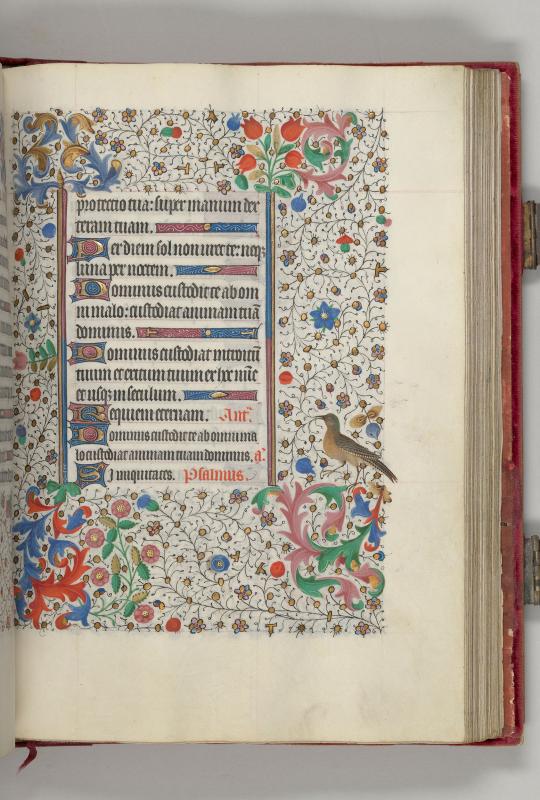 protectio tua: super manum dex
teram tuam.
Per diem sol non uret te: neq;
luna per noctem.
Dominus custodit te ab om
ni malo: custodiat animam tuã
dominus.
Dominus custodiat introitũ
tuum et exitum tuum ex hoc nũc
et usq; in seculum.
Requiem eternam. Anta.
Dominus custodit te ab omni ma
lo custodiat animam tuam dominus. a.
Si iniquitates. Psalmus.